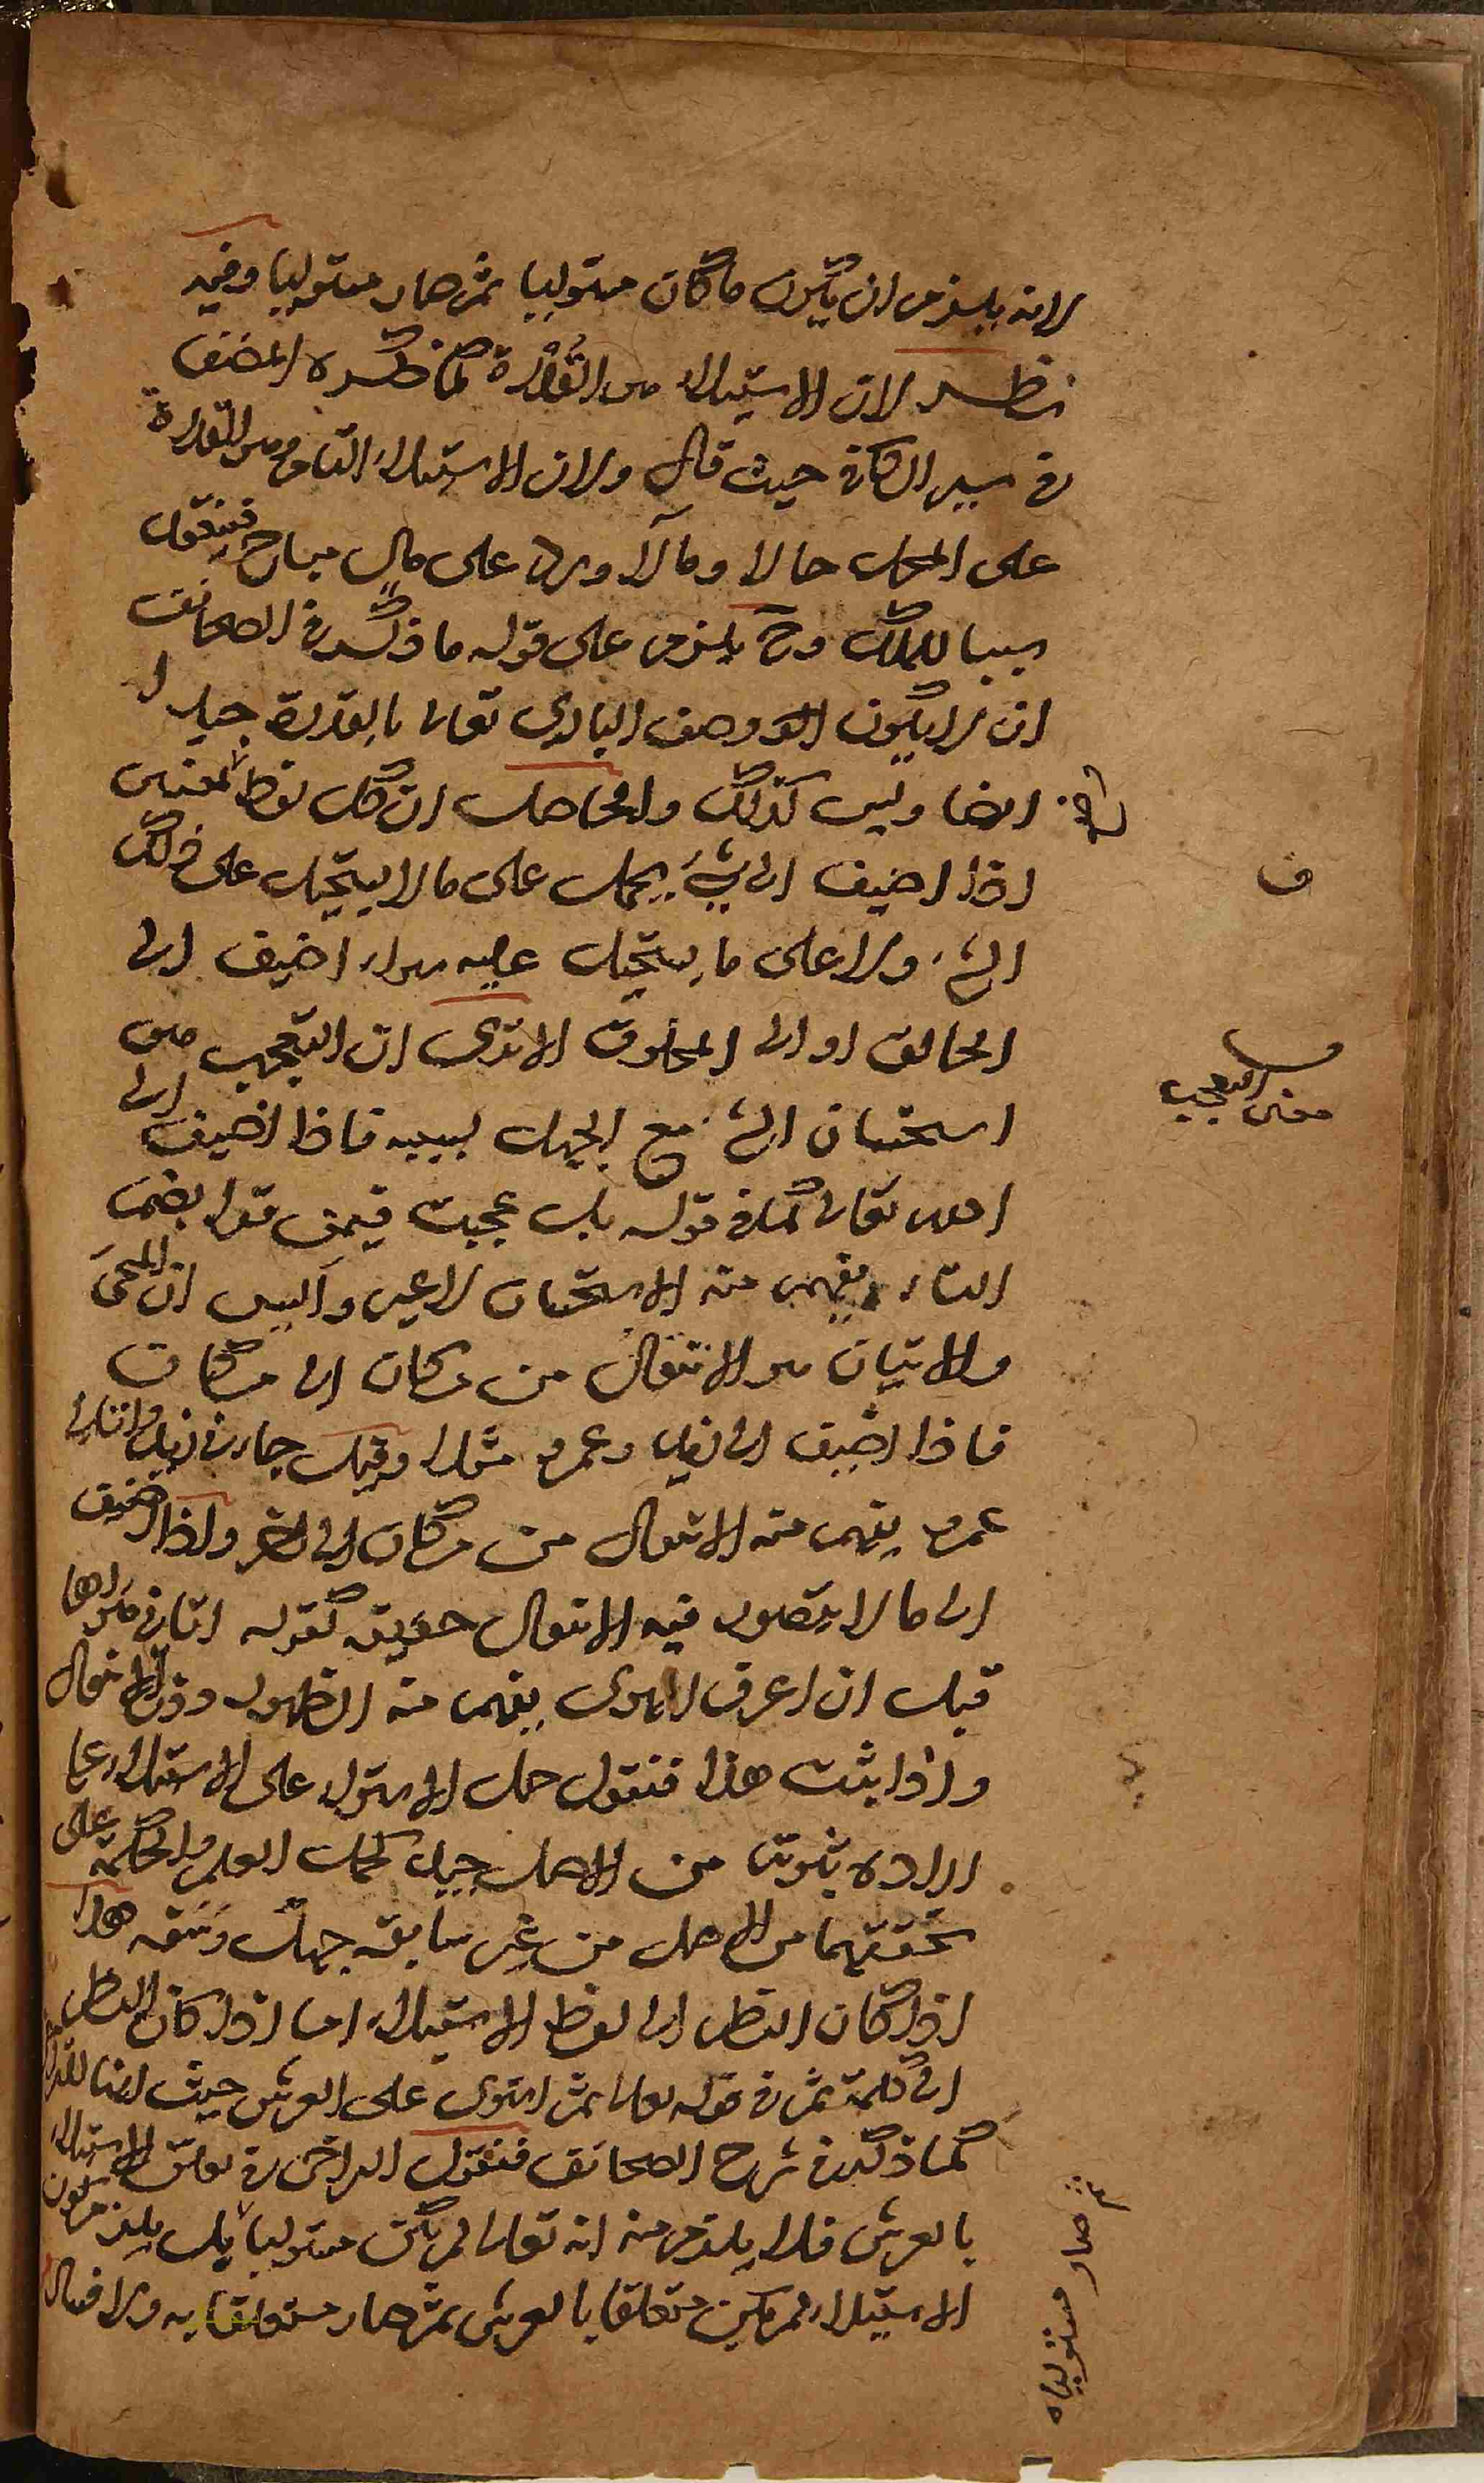 لانه يلزم ان يكون ما كان مستوليا ثم صار مستوليا وفيه
نظر لان الاستيلاء هو القدرة كما ذكره المصنف
في سير الكافي حيث قال ولان الاستيلاء التام هو القدرة
على المحل حالا ومآلا ورد على مال مباح فينعقد
سببا للملك وح يلزم على قوله ما ذكر في الصحائف
ان لا يكون وصف الباري تعالى بالقدرة جيدا
ايضا وليس كذلك والحاصل ان كل لفظ لمعنى
اذا اضيف الى شيء يحمل على ما لا يستحيل على ذلك
الشيء ولا على ما يستحيل عليه سواء اضيف الى
الخالق او الى المخلوق الا ترى ان التعجب هو
استحسان الشيء مع الجهل بسببه فاذا اضيف الى
الله تعالى كما في قوله بل عجبت فيمن قرا بضم
التاء يفهم منه الاستحسان لا غير واليس ان المجيء
والاتيان هو الانتقال من مكان الى مكان
فاذا اضيف الى زيد وعمرو مثلا وقيل جاءني زيد واتاني
عمرو يفهم منه الانتقال من مكان الى اخر واذا اضيف
الى ما لا يتصور فيه الانتقال حقيقة كقوله اتاني هواها
قبل ان اعرف الهوى يفهم منه الظهور دون الانتقال
واذا ثبت هذا فنقول حمل الاستواء على الاستيلاء على
ارادة ثبوته من الاصل جيد كحمل العلم والحكمة على
تحققهما من الاصل من غير سابقة جهل وسفه هذا
اذا كان النظر الى لفظ الاستيلاء اما اذا كان النظر
الى كلمة ثم في قوله تعالى ثم استوى على العرش حيث انها للتراخي
كما ذكر في شرح الصحائف فنقول التراخي في تعلق الاستيلاء
بالعرش فلا يلزم منه انه تعالى لم يكن مستوليا بل يلزم كون
الاستيلاء لم يكن متعلقا بالعرش ثم صار متعلقا به ولا فساد
ف
معنى التعجب
ثم صار مستوليا